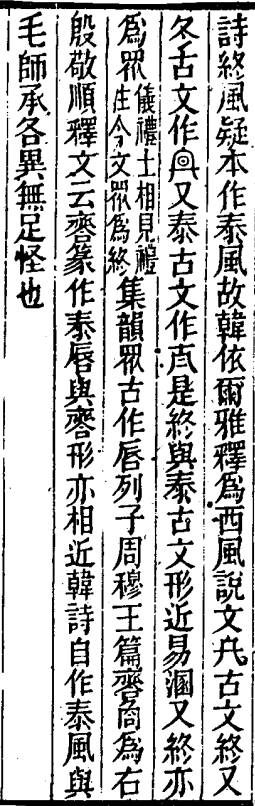 詩終風疑本作泰風故韓依爾雅釋爲西風說文𠂂古文終又
冬古文作𠔙又泰古文作𡗗是終與泰古文形近易溷又終亦
爲眾儀禮士相見禮注今文眾爲終集韻眾古作㞋列子周穆王篇𠶷商爲右
殷敬順釋文云𠶷篆作泰㞋與𠶷形亦相近韓詩自作泰風與
毛師承各異無足怪也